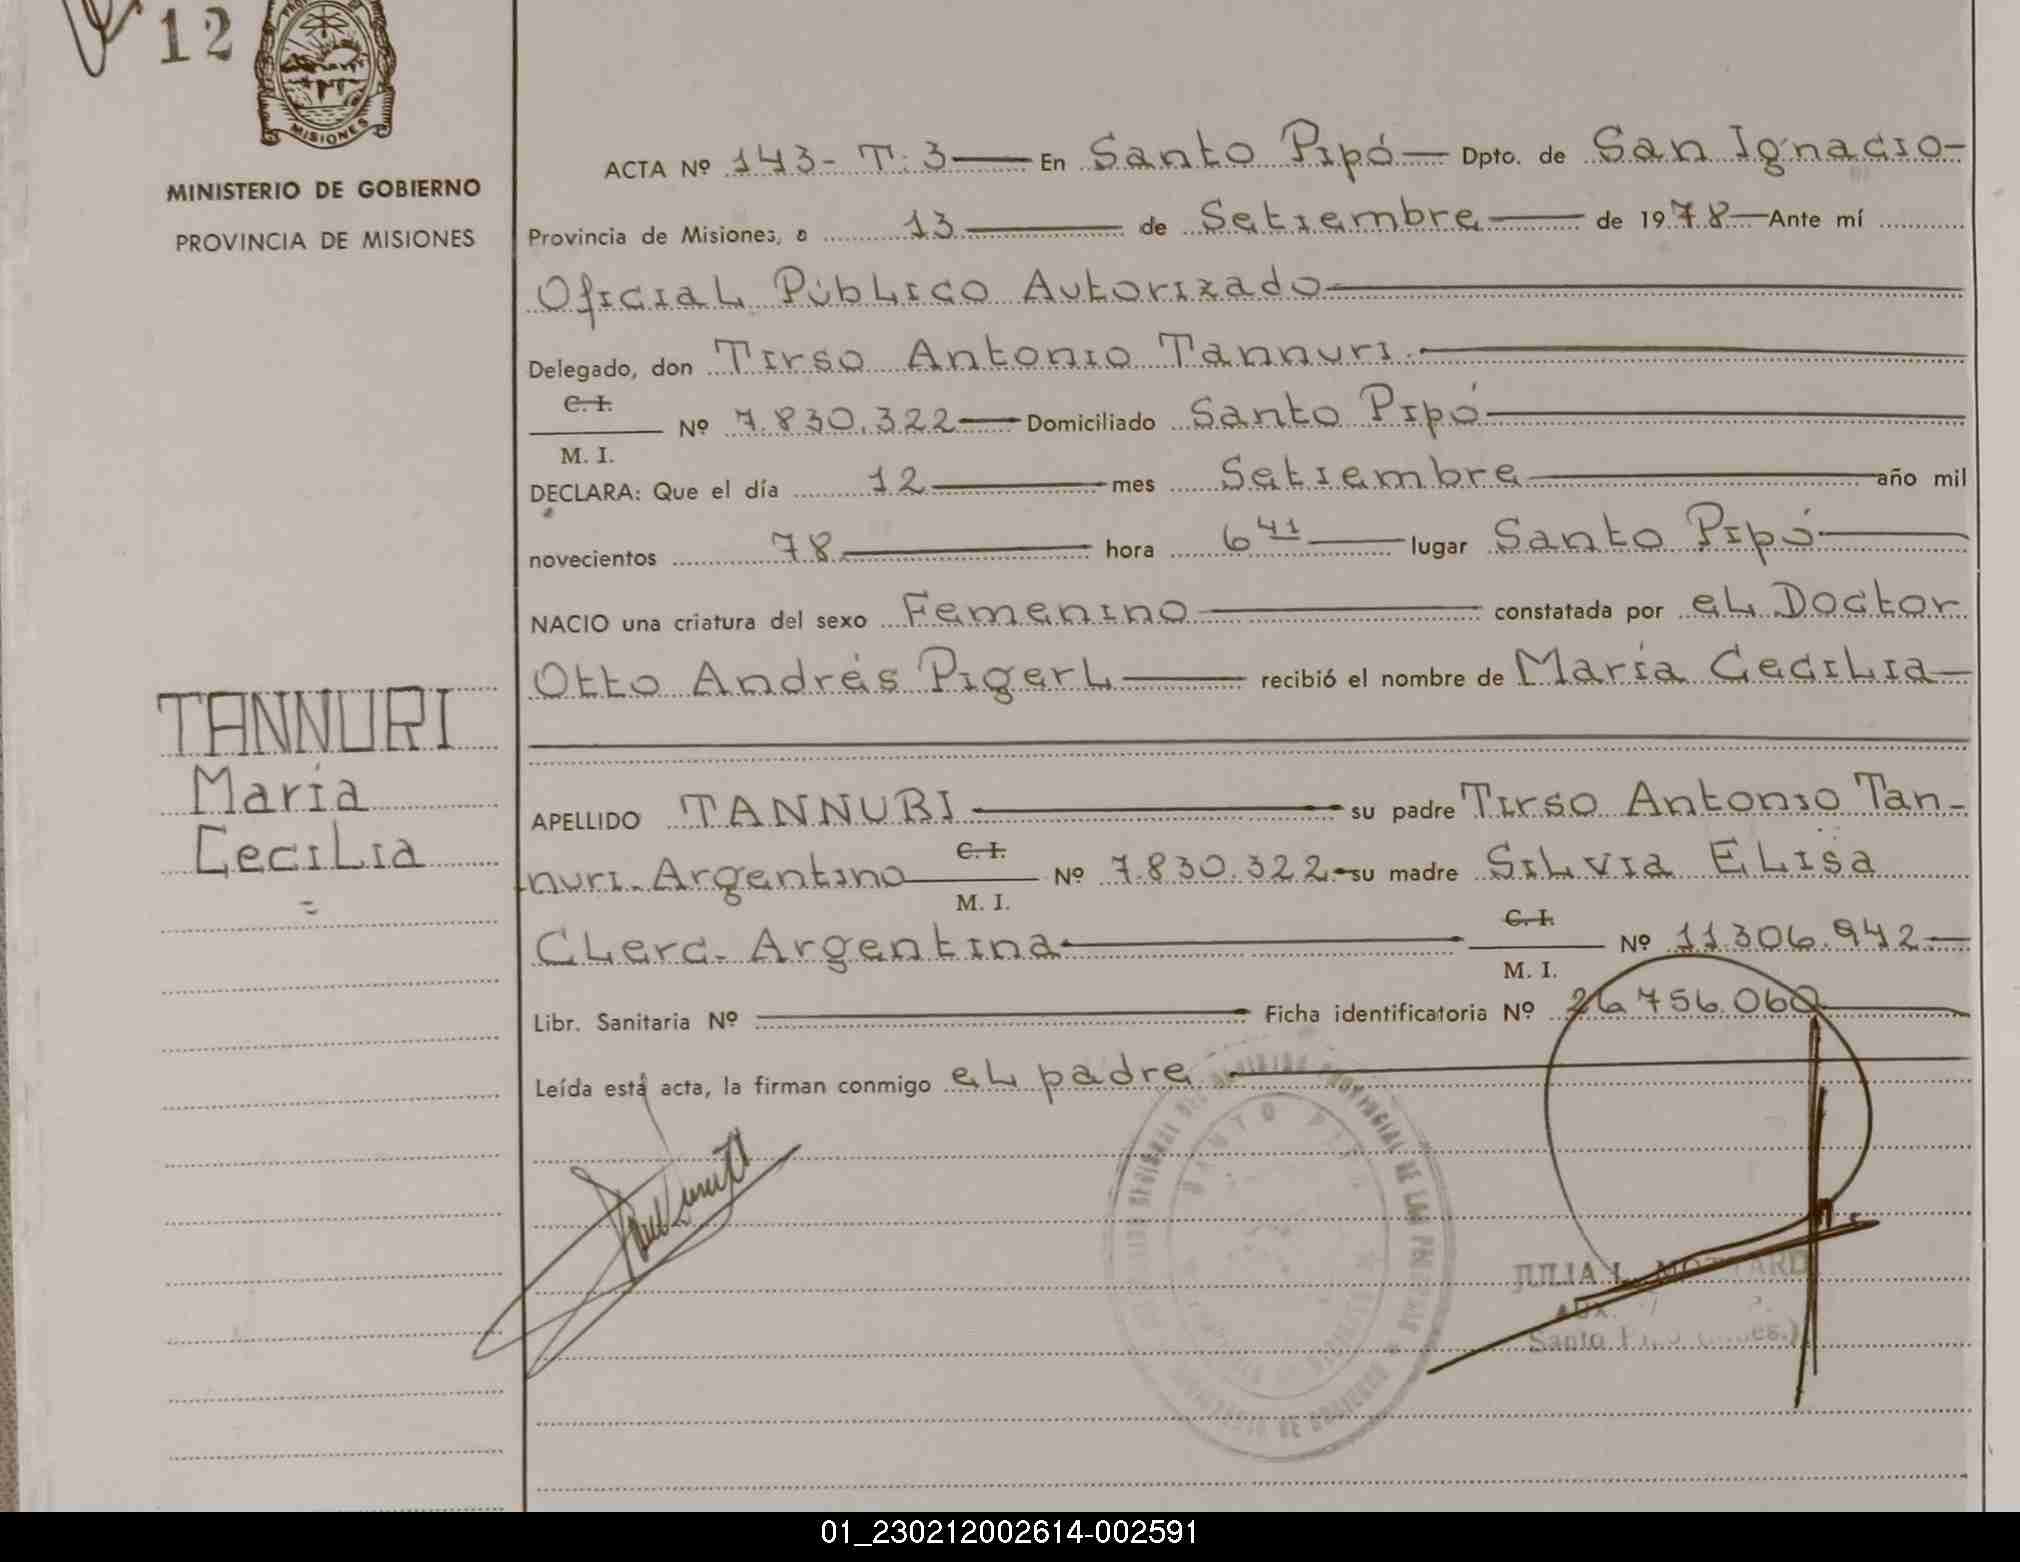 12
MISIONES
MINISTERIO DE GOBIERNO
PROVINCIA DE MISIONES
TANNURI
María
Cecilia
ACTA Nº 143- T: 3 En Santo Pipó Dpto. de San Ignacio
Provincia de Misiones, a 13 de Setiembre de 1978 Ante mí
Oficial Público Autorizado
Delegado, don Tirso Antonio Tannuri.
C. I.
M. I. Nº 7.830.322 Domiciliado Santo Pipó
DECLARA: Que el día 12 mes Setiembre año mil
novecientos 78 hora 6 41 lugar Santo Pipó
NACIO una criatura del sexo Femenino constatada por el Doctor
Otto Andrés Pigerl recibió el nombre de María Cecilia
APELLIDO TANNURI su padre Tirso Antonio Tan-
nuri. Argentino C. I. M. I. Nº 7.830.322 su madre Silvia Elisa
Clerc. Argentina C. I. M. I. Nº 11306.942
Libr. Sanitaria Nº Ficha identificatoria Nº 26.756.060
Leída está acta, la firman conmigo el padre
PROVINCIAL DE LAS PERSONAS
SANTO PIPO
JULIA L.
AUX.
Santo
01_230212002614-002591